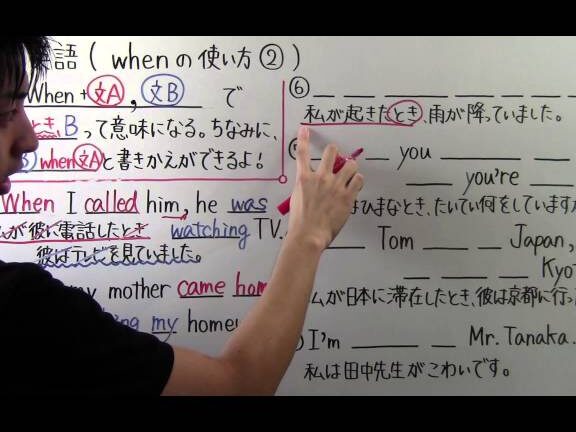 語 ( whenの使い方② )
When + 文A , 文B で
とき, B って意味になる。ちなみに、
B when 文A と書きかえができるよ!
When I called him, he was
が彼に電話したとき watching TV.
彼はテレビを見ていました。
my mother came hom
ing my homew
⑥ __ __ __ __ __ __ __
私が起きたとき、雨が降っていました。
__ __ you __ __
__ you're __
ひまなとき、たいてい何をしています
__ Tom __ __ Japan,
__ __ __ __ Kyo
私が日本に滞在したとき、彼は京都に行っ
I'm __ __ Mr. Tanaka.
私は田中先生がこわいです。